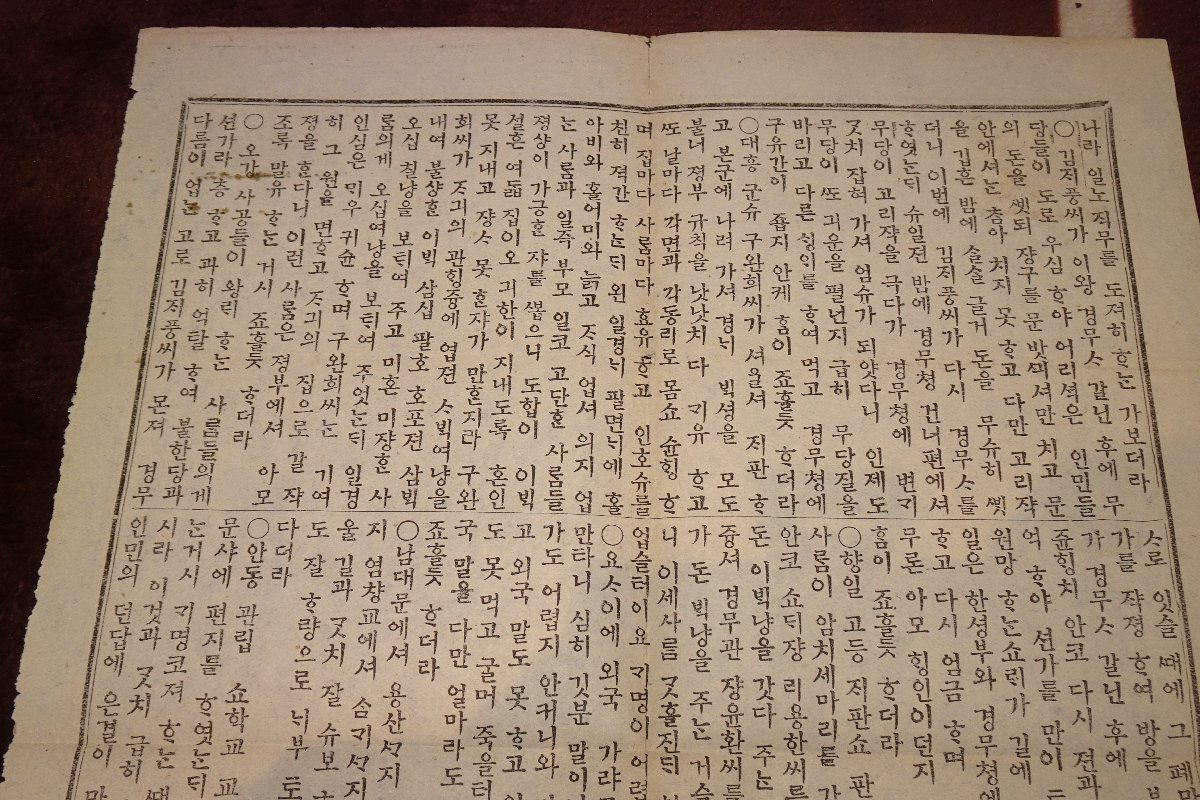 나라 일노 직무를 도져히 ᄒᆞᄂᆞᆫ 가보더라
○김ᄌᆡ풍씨가 이왕 경무ᄉᆞ 갈닌 후에 무
당들이 도로 우심 ᄒᆞ야 어리셕은 인민들
의 돈을 ᄲᆡᆺ되 쟝구를 문 밧긔셔만 치고 문
안에셔ᄂᆞᆫ ᄎᆞᆷ아 치지 못 ᄒᆞ고 다만 고리ᄶᅡᆨ
을 깁흔 밤에 슬슬 글거 돈을 무슈히 ᄲᆡᆺ
더니 이번에 김ᄌᆡ풍씨가 다시 경무ᄉᆞ를
ᄒᆞ엿ᄂᆞᆫᄃᆡ 슈일젼 밤에 경무쳥 건너편에셔
무당이 고리쟉을 극다가 경무쳥에 변긔
ᄀᆞᆺ치 잡혀 가셔 엄슈가 되얏다니 인졔도
무당이 ᄯᅩ 긔운을 펼넌지 급히 무당질을
바리고 다른 ᄉᆡᆼ인를 ᄒᆞ여 먹고 경무쳥에
구유간이 죱지 안케 ᄒᆞᆷ이 죠흘ᄃᆞᆺ ᄒᆞ더라
○대흥 군슈 구완희씨가 셔울셔 ᄌᆡ판 ᄒᆞ
고 본군에 나려 가셔 경ᄂᆡ ᄇᆡᆨ셩을 모도
불너 졍부 규칙을 낫낫치 다 ᄀᆡ유 ᄒᆞ고
ᄯᅩ 날마다 각면과 각동리로 몸쇼 슌ᄒᆡᆼ ᄒᆞ
며 집마다 사ᄅᆞᆷ마다 효유ᄒᆞ고 인호슈를
친히 젹간 ᄒᆞᄂᆞᆫᄃᆡ 왼 일경ᄂᆡ 팔면ᄂᆡ에 홀
아비와 홀어미와 늙고 ᄌᆞ식 업셔 의지 업
ᄂᆞᆫ 사ᄅᆞᆷ과 일즉 부모 일코 고단ᄒᆞᆫ 사ᄅᆞᆷ들
졍샹이 가긍ᄒᆞᆫ 쟈를 ᄲᅩᆸ으니 도합이 이ᄇᆡᆨ
셜흔 여ᄃᆞᆲ 집이오 긔한이 지내도록 혼인
못 지내고 쟝ᄉᆞ 못 ᄒᆞᆫ쟈가 만흔지라 구완
희씨가 ᄌᆞ긔의 관황즁에 엽젼 ᄉᆞᄇᆡᆨ여냥을
내여 불샹ᄒᆞᆫ 이ᄇᆡᆨ 삼십 팔호 호포젼 삼ᄇᆡᆨ
오십 칠냥을 보ᄐᆡ여 주고 미혼 미쟝ᄒᆞᆫ 사
ᄅᆞᆷ의게 오십여냥을 보ᄐᆡ여 주엇ᄂᆞᆫᄃᆡ 일경
인심은 ᄆᆡ우 귀슌 ᄒᆞ며 구완희씨ᄂᆞᆫ 기여
히 그 원을 면ᄒᆞ고 ᄌᆞ긔의 집으로 갈 쟉
졍을 ᄒᆞᆫ다니 이런 사ᄅᆞᆷ은 졍부에셔 아모
조록 말유 ᄒᆞᄂᆞᆫ 거시 죠흘ᄃᆞᆺ ᄒᆞ더라
○오강 사공들이 왕ᄅᆡ ᄒᆞᄂᆞᆫ 사ᄅᆞᆷ들의게
션가라 층ᄒᆞ고 과히 억탈 ᄒᆞ여 불한당과
다름이 업ᄂᆞᆫ 고로 김ᄌᆡ풍씨가 몬져 경무
ᄉᆞ로 잇슬 ᄯᅢ에 그 폐
가를 쟉졍 ᄒᆞ여 방을
가 경무ᄉᆞ 갈닌 후에
쥰ᄒᆡᆼ치 안코 다시 젼과
억 ᄒᆞ야 션가를 만이
원망 ᄒᆞᄂᆞᆫ 쇼ᄅᆡ가 길에
일은 한셩부와 경무쳥에
ᄒᆞ고 다시 엄금 ᄒᆞ며
무론 아모 ᄒᆡᆼ인이던지
ᄒᆞᆷ이 죠흘ᄃᆞᆺ ᄒᆞ더라
○향일 고등 ᄌᆡ판쇼 판
사ᄅᆞᆷ이 암치세마리를
안코 쇼ᄃᆡ쟝 리용한씨
돈 이ᄇᆡᆨ냥을 갓다 주ᄂᆞᆫ
즁셔 경무관 쟝윤환씨를
가 돈 ᄇᆡᆨ냥을 주ᄂᆞᆫ 거슬
니 이세사ᄅᆞᆷ ᄀᆞᆺ흘진ᄃᆡ
업슬터이요 ᄀᆡ명이 어려
○요ᄉᆞ이에 외국 가랴
만타니 심히 깃분 말이
가도 어렵지 안커니와
고 외국 말도 못 ᄒᆞ고
도 못먹고 굴머 죽을터
국 말을 다만 얼마라도
죠흘ᄃᆞᆺ ᄒᆞ더라
○남대문에셔 룡산ᄭᆞ지
지 염창교에셔 삼ᄀᆡᄭᆞ지
울 길과 ᄀᆞᆺ치 잘 슈보
도 잘 ᄒᆞ랑으로 ᄂᆡ부
다더라
○안동 관립 쇼학교 교
문샤에 편지를 ᄒᆞ엿ᄂᆞᆫᄃᆡ
ᄂᆞᆫ거시 ᄀᆡ명코져 ᄒᆞᄂᆞᆫ
시라 이것과 ᄀᆞᆺ치 급히
인민의 뎐답에 은결이